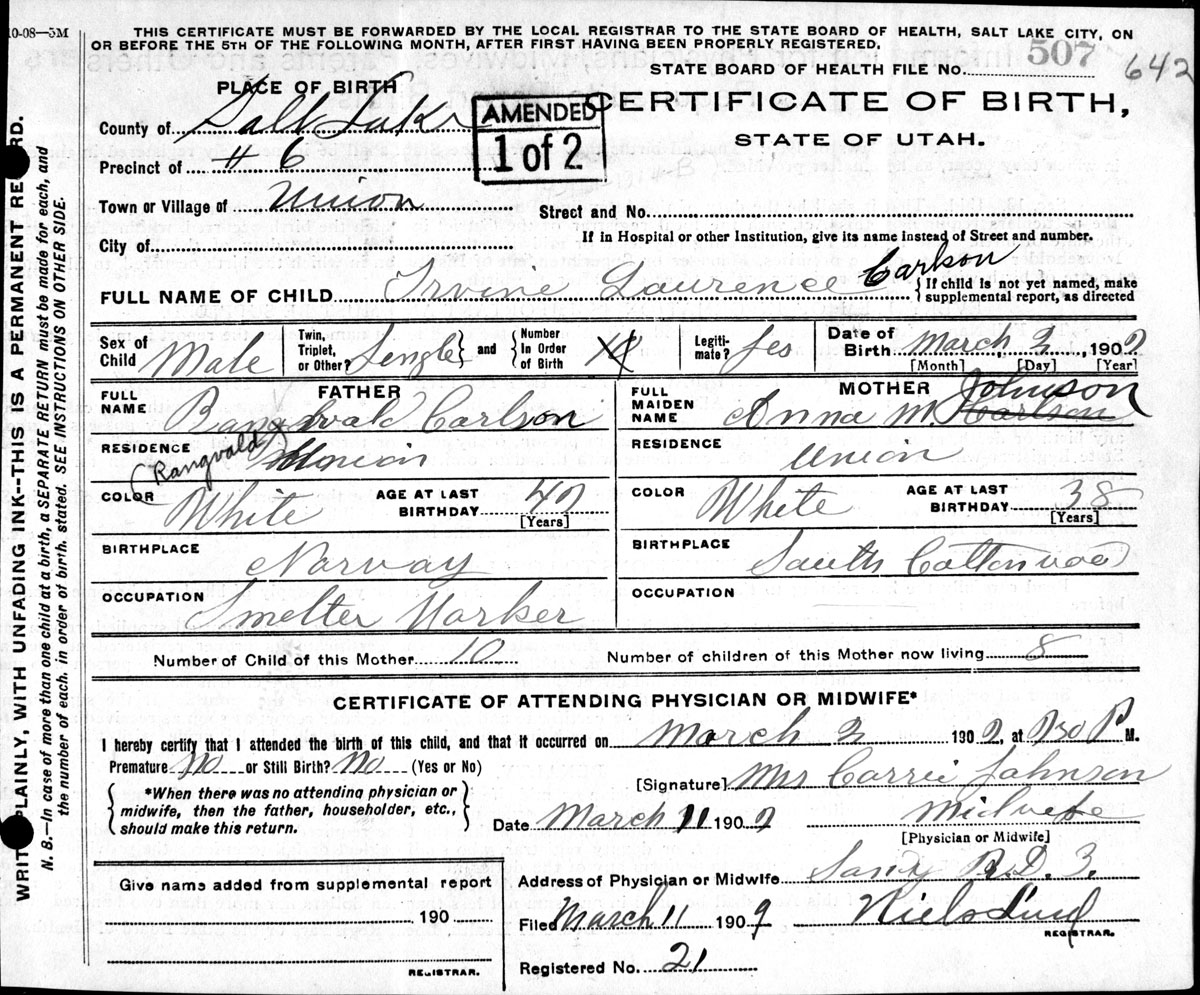 10-08—5M
THIS CERTIFICATE MUST BE FORWARDED BY THE LOCAL REGISTRAR TO THE STATE BOARD OF HEALTH, SALT LAKE CITY, ON
OR BEFORE THE 5TH OF THE FOLLOWING MONTH, AFTER FIRST HAVING BEEN PROPERLY REGISTERED.
STATE BOARD OF HEALTH FILE No. 507 642
PLACE OF BIRTH
AMENDED
1 of 2
CERTIFICATE OF BIRTH,
STATE OF UTAH.
County of Salt Lake
Precinct of # 6
Town or Village of Union
Street and No.
City of
If in Hospital or other Institution, give its name instead of Street and number.
FULL NAME OF CHILD Irvine Laurence Carlson
{ If child is not yet named, make
supplemental report, as directed
Sex of Child Male
Twin, Triplet, or Other? Sengle } and { Number In Order of Birth
Legiti- mate? Yes
Date of Birth March 3, 1909
[Month] [Day] [Year]
FATHER
FULL NAME Rangvald Carlson
(Rangvald
RESIDENCE Union
COLOR White
AGE AT LAST BIRTHDAY 47
[Years]
BIRTHPLACE Narway
OCCUPATION Smelter Warker
MOTHER
FULL MAIDEN NAME Anna M. Carlson Johnson
RESIDENCE Union
COLOR White
AGE AT LAST BIRTHDAY 38
[Years]
BIRTHPLACE South Cottonwood
OCCUPATION
Number of Child of this Mother 10
Number of children of this Mother now living 8
CERTIFICATE OF ATTENDING PHYSICIAN OR MIDWIFE*
I hereby certify that I attended the birth of this child, and that it occurred on March 3 1909, at 730 P M.
Premature No or Still Birth? No (Yes or No)
[Signature] Mrs Carrie Johnson
{ *When there was no attending physician or
midwife, then the father, householder, etc.,
should make this return. }
Date March 11 1909
Midwife
[Physician or Midwife]
Address of Physician or Midwife Sandy R.D. 3.
Give name added from supplemental report
190
REGISTRAR.
Filed March 11 1909
Niels Lind
REGISTRAR.
Registered No. 21
WRITE PLAINLY, WITH UNFADING INK--THIS IS A PERMANENT RECORD.
N. B.—In case of more than one child at a birth, a SEPARATE RETURN must be made for each, and
the number of each. in order of birth. stated. SEE INSTRUCTIONS ON OTHER SIDE.